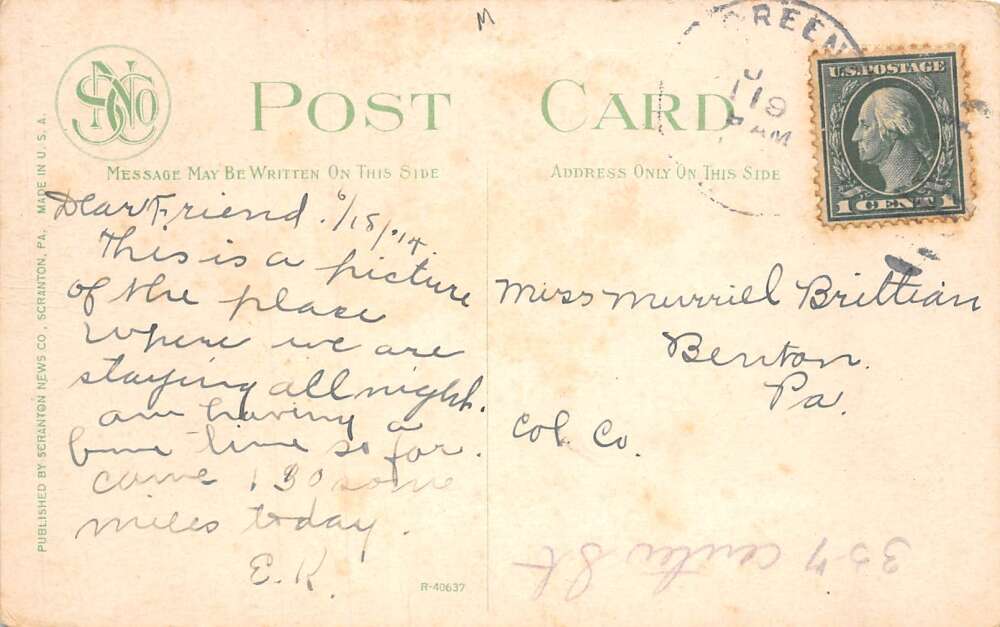 M
GREEN
119
AM
U.S. POSTAGE
1 CENT 1
SNCO
POST CARD
MESSAGE MAY BE WRITTEN ON THIS SIDE
ADDRESS ONLY ON THIS SIDE
PUBLISHED BY SCRANTON NEWS CO., SCRANTON, PA. MADE IN U.S.A.
Dear Friend. 6/18/14
This is a picture
of the place
where we are
staying all night.
am having a
fine time so far.
came 130 some
miles today.
E. K.
R-40637
Miss Murriel Brittian
Benton.
Pa.
Col. Co.
357 Center St